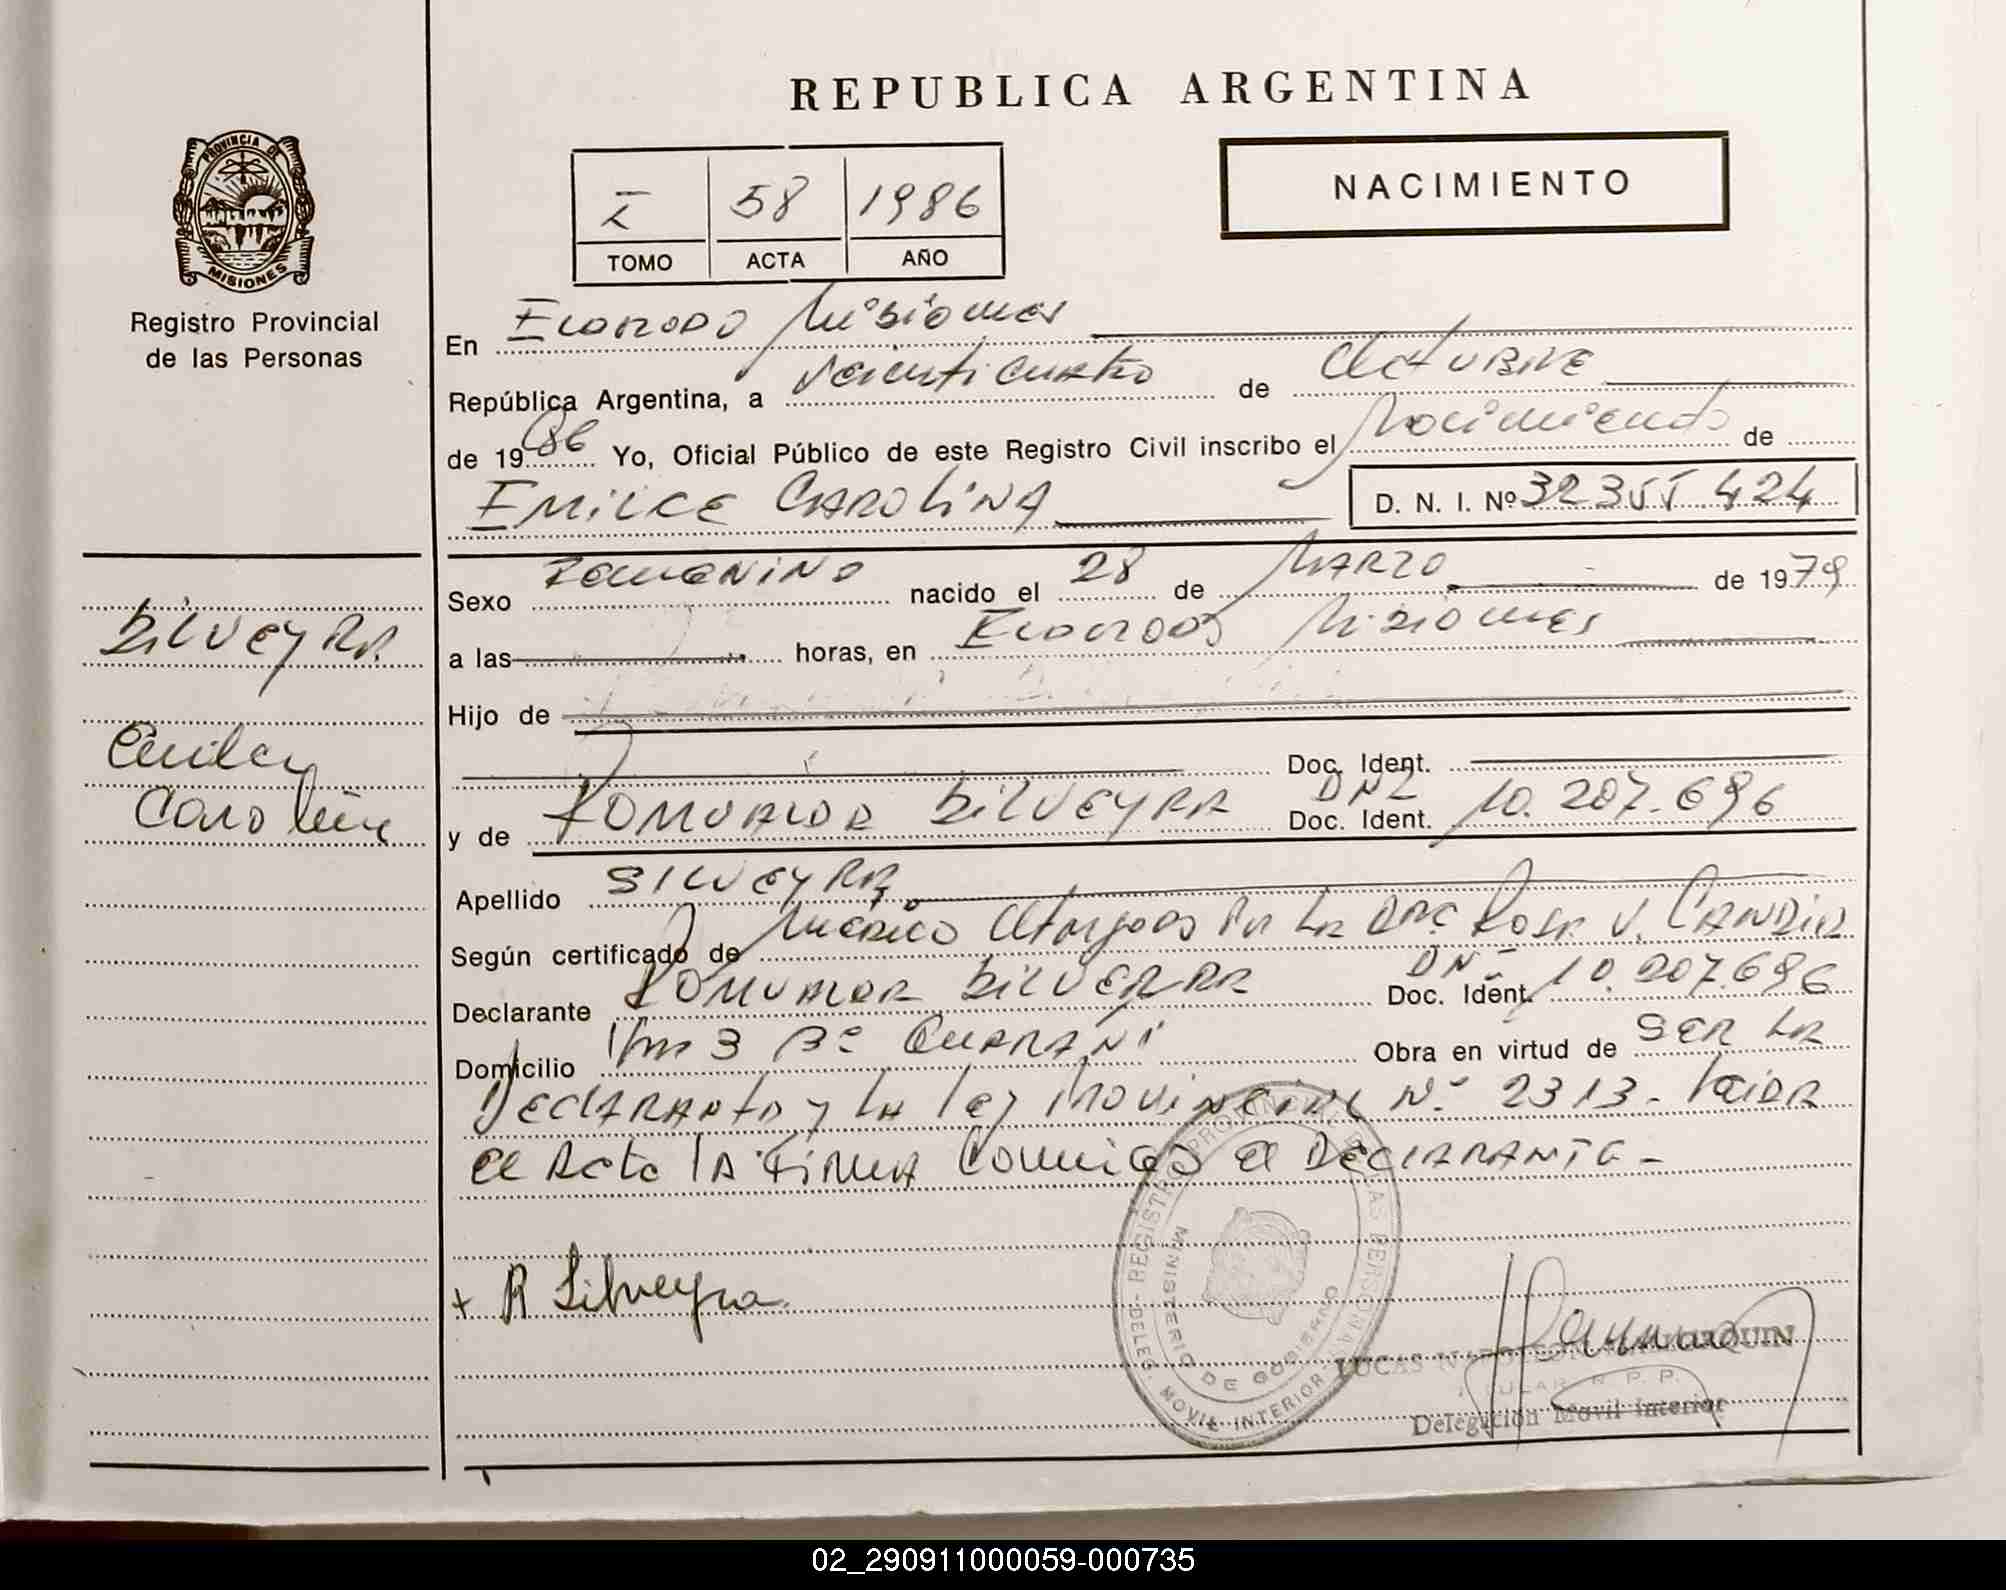 REPUBLICA ARGENTINA
PROVINCIA DE
MISIONES
Registro Provincial
de las Personas
I 58 1986
TOMO ACTA AÑO
NACIMIENTO
En Eldorado Misiones
República Argentina, a veinticuatro de Octubre
de 1986 Yo, Oficial Público de este Registro Civil inscribo el Nacimiento de
EMILCE CAROLINA D. N. I. Nº 32355.424
Sexo Femenino nacido el 28 de Marzo de 1979
a las horas, en Eldorado Misiones
Hijo de
Doc. Ident.
y de ROMUALDA SILVEYRA DNI Doc. Ident. 10.207.696
Apellido SILVEYRA
Según certificado de Médico Otorgado Por La DRA Rosa V. Candia
Declarante ROMUALDA SILVEYRA DNI Doc. Ident. 10.207.696
Domicilio Km 3 Bº Guarani Obra en virtud de SER LA
Declarante y La Ley Provincial Nº 2313- Leida
el Acta la Firma Conmigo el Declarante-
SILVEYRA
Emilce
Carolina
+ R Silveyra
DELEG. MOVIL INTERIOR - REGISTRO PROVINCIAL DE LAS PERSONAS
MINISTERIO DE GOBIERNO
LUCAS NAPOLEON
TITULAR R. P. P.
Delegación Movil Interior
02_290911000059-000735